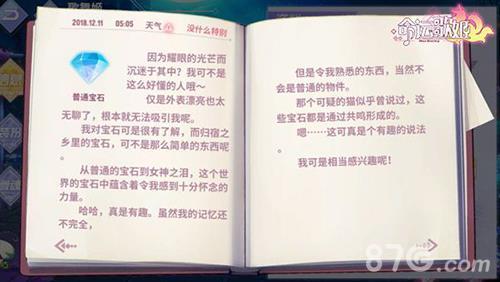 2018.12.11 05:05 天气 没什么特别
因为耀眼的光芒而
沉迷于其中？我可不是
这么好懂的人哦～
普通宝石
仅是外表漂亮也太
无聊了，根本就无法吸引我呢。
我对宝石可是很有了解，而归宿之
乡里的宝石，可不是那么简单的东西呢
。
从普通的宝石到女神之泪，这个世
界的宝石中蕴含着令我感到十分怀念的
力量。
哈哈，真是有趣。虽然我的记忆还
不完全，
但是令我熟悉的东西，当然不
会是普通的物件。
那个可疑的猫似乎曾说过，这
些宝石都是通过共鸣形成的。
嗯……这可真是个有趣的说法
。
我可是相当感兴趣呢！
命运歌姬
87G.com